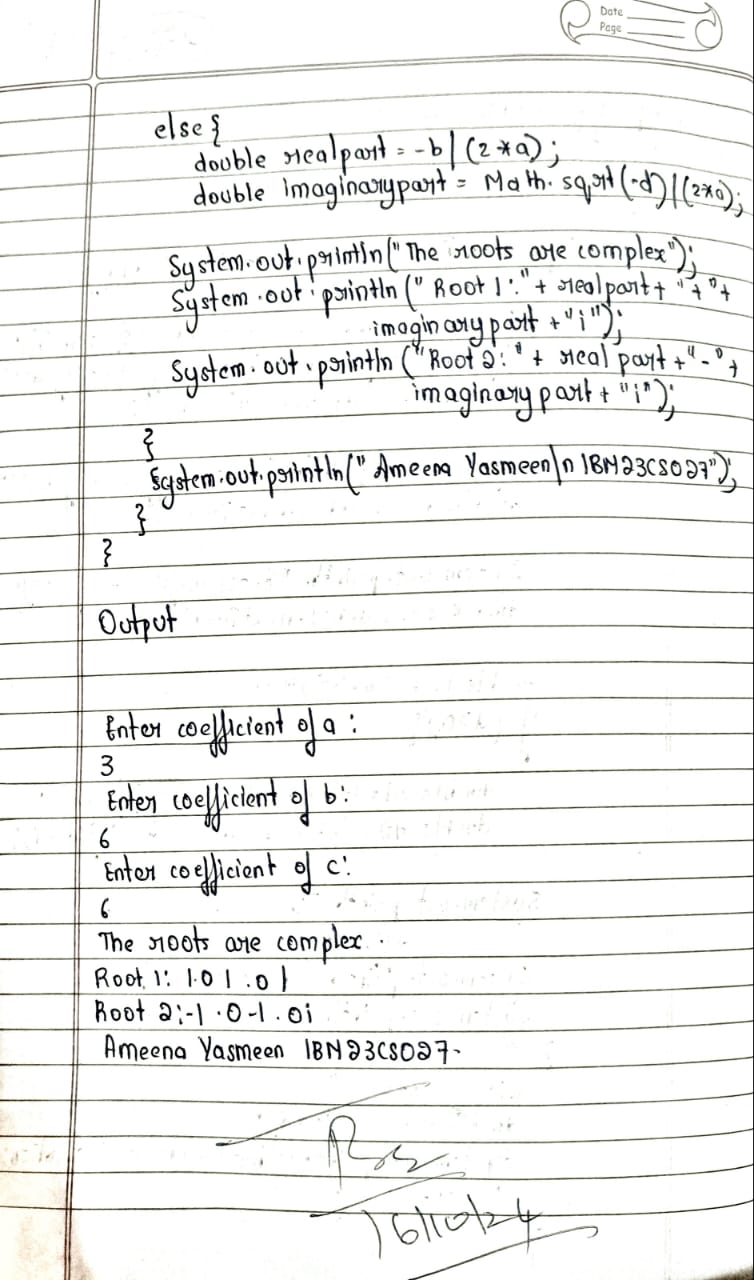 Date
Page
else {
double realpart = -b/(2*a);
double imaginarypart = Math.sqrt(-d)/(2*a);
System.out.println("The roots are complex");
System.out.println("Root 1:"+ realpart+ "+"+
imaginarypart +"i");
System.out.println("Root 2:"+ real part +"-"+
imaginary part + "i");
}
System.out.println("Ameena Yasmeen\n 1BM23CS027");
}
}
Output
Enter coefficient of a:
3
Enter coefficient of b:
6
Enter coefficient of c:
6
The roots are complex.
Root 1: 1.0 1.01
Root 2:-1.0-1.0i
Ameena Yasmeen 1BM23CS027.
16/10/24